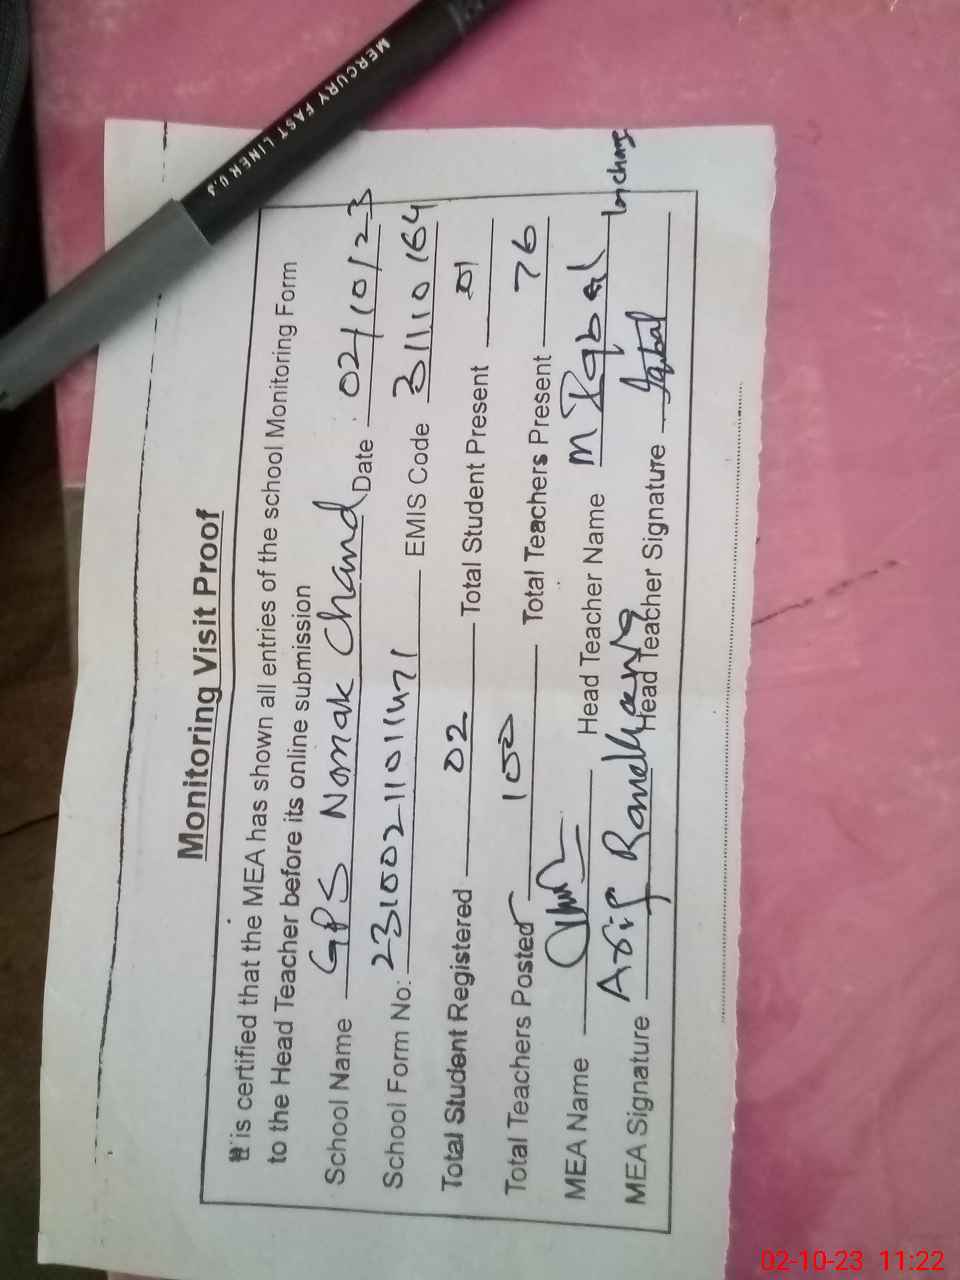 MERCURY FAST LINER 0.5
Monitoring Visit Proof
It is certified that the MEA has shown all entries of the school Monitoring Form
to the Head Teacher before its online submission
School Name GPS Nomak Chand Date 02/10/23
School Form No: 2310021101471 EMIS Code 31110164
Total Student Registered 02 Total Student Present 01
Total Teachers Posted 100 Total Teachers Present 76
MEA Name Head Teacher Name M Iqbal Incharge
MEA Signature Asif Head Teacher Signature Iqbal
02-10-23 11:22